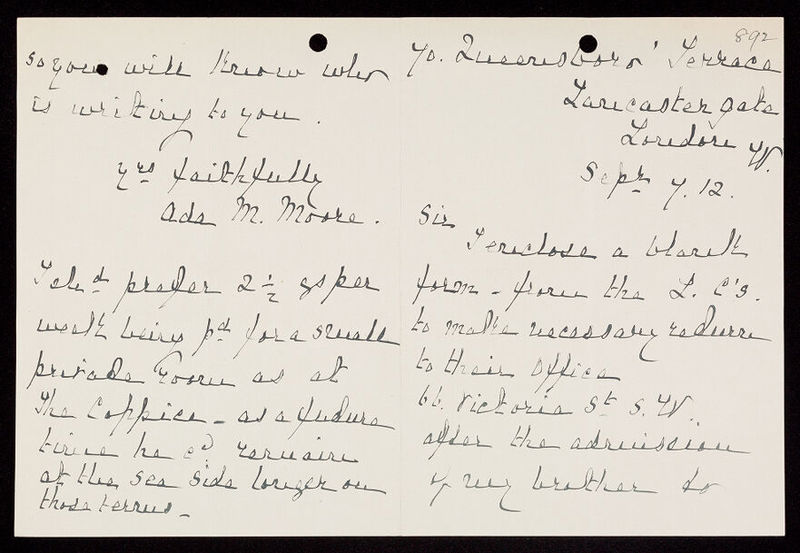 892
70. Queensboro' Terrace
Lancaster gate
London W.
Sepr 7. 12.
Sir
I enclose a blank
form - from the L. C's.
to make necessary return
to their Office
66. Victoria St S. W.
after the admission
of my brother to
so you will know who
is writing to you.
yrs faithfully
Ada M. Moore.
I shd prefer 2 1/2 gs per
week being pd for a small
private room as at
The Coppice - as a future
time he cd remain
at the sea side longer on
those terms -